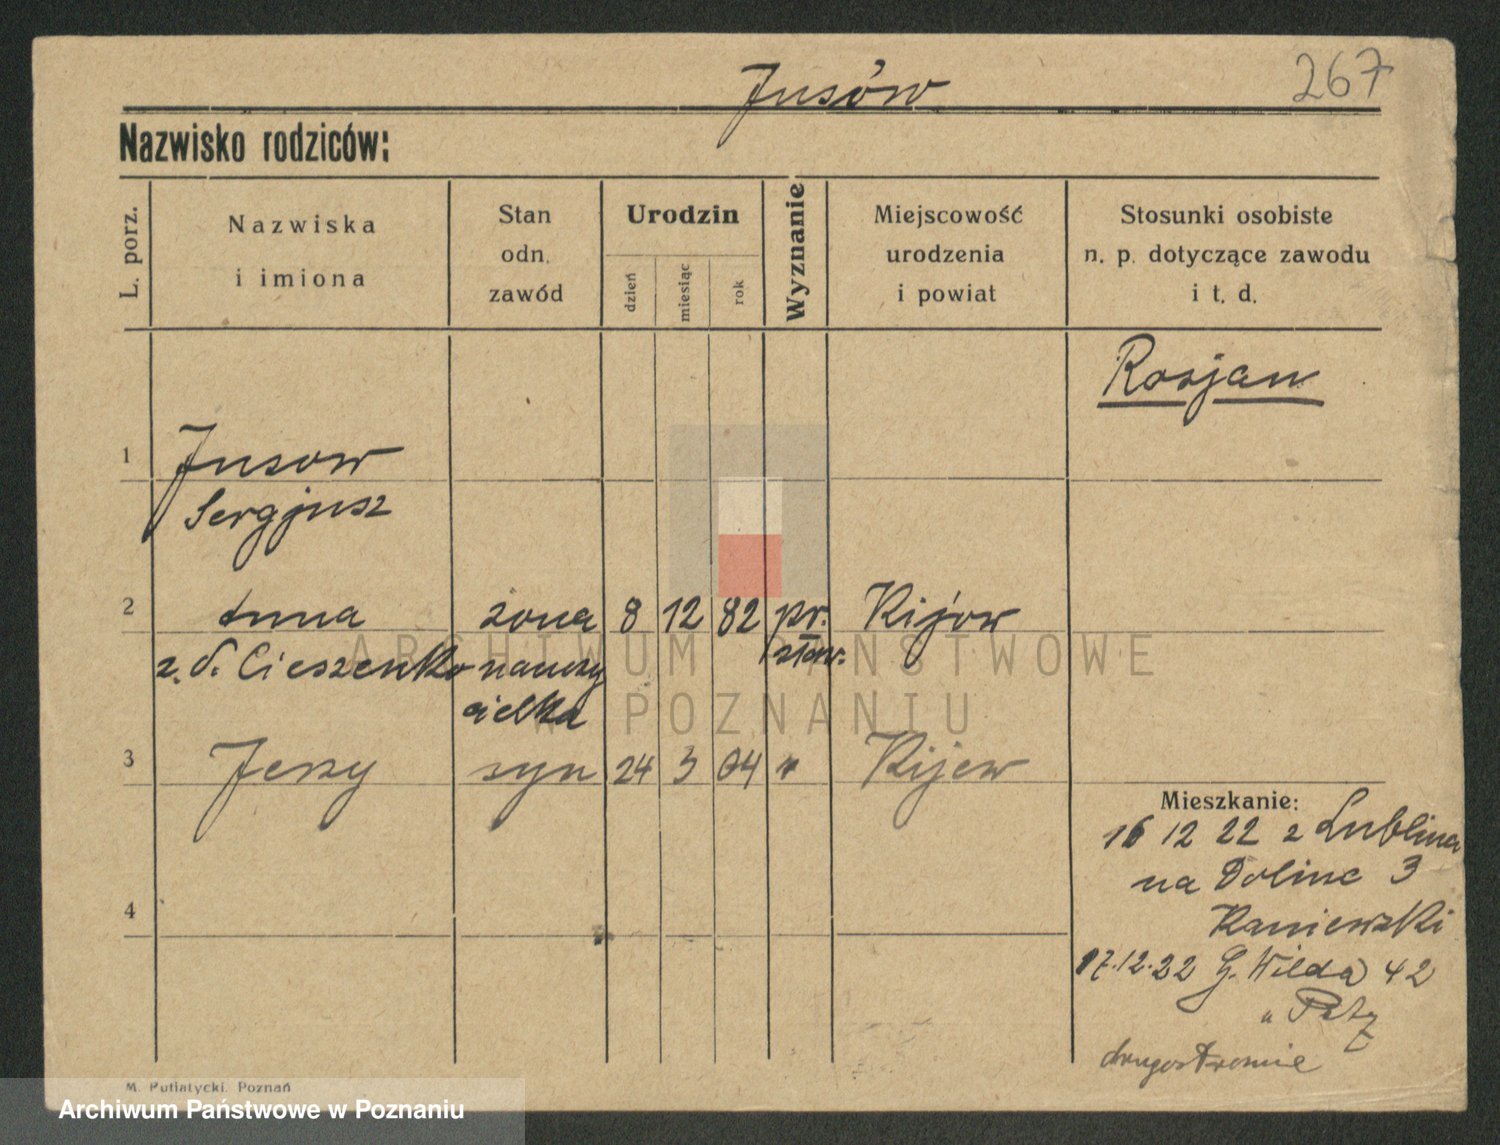 267
Jusów
Nazwisko rodziców:
L. porz.
Nazwiska
i imiona
Stan
odn.
zawód
Urodzin
dzień
miesiąc
rok
Wyznanie
Miejscowość
urodzenia
i powiat
Stosunki osobiste
n. p. dotyczące zawodu
i t. d.
Rosjan
1 Jusow
Sergjusz
2 Anna żona 8 12 82 pr. Kijow
z d. Cieszenko nauczy sław.
cielka
3 Jerzy syn 24 3 04 " Kijew
Mieszkanie:
16 12 22 z Lublina
na Doline 3
Kaniewski
4
17.12.22 G. Wilda 42
"
drugostronnie
M. Putiatycki, Poznań
ARCHIWUM PAŃSTWOWE
W POZNANIU
Archiwum Państwowe w Poznaniu